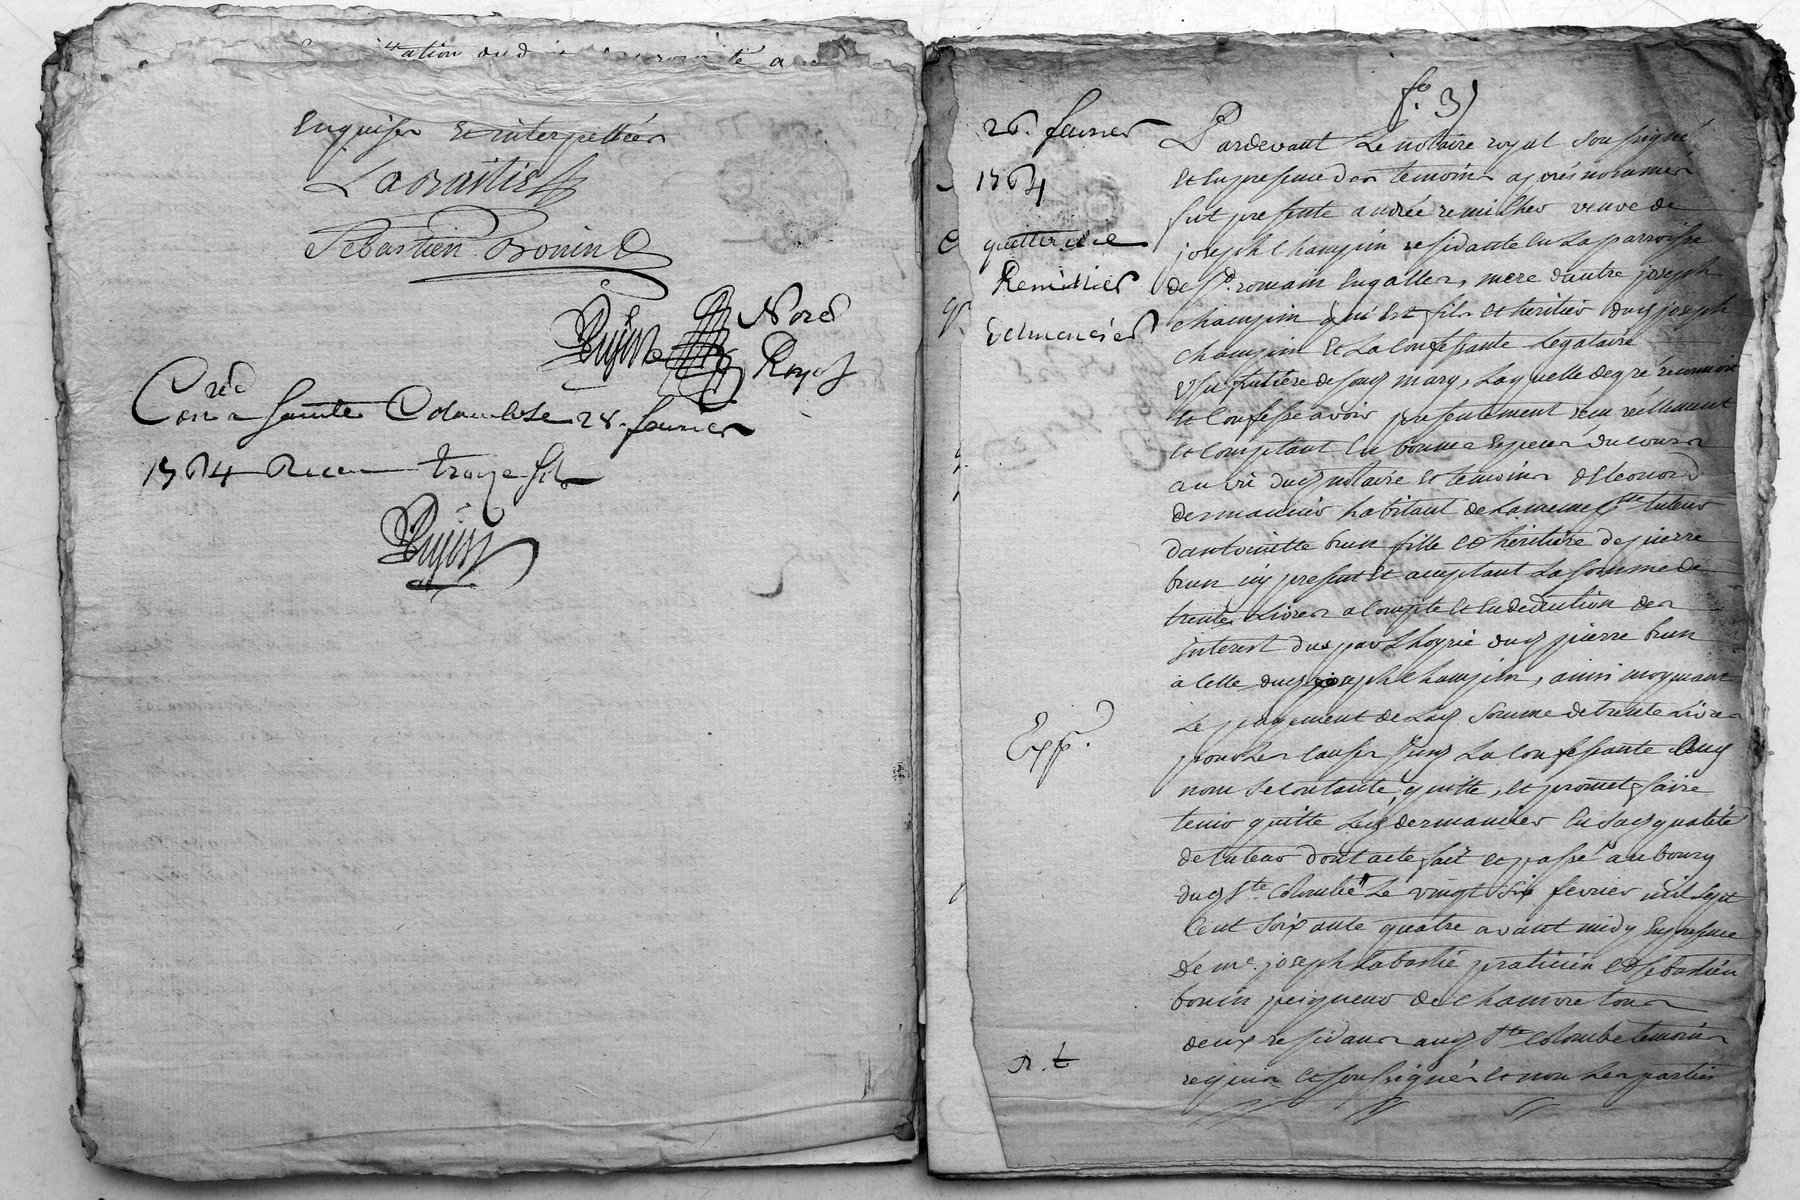 enquis et interpellés
Labastie
Sebastien Bonin
Pujost Nore
Royal
Coné a Sainte Colombe 28. fevrier
1764 Receu treize sols
Pujost
fo. 3
26. fevrier
1764
quittance
Remillier
Dermancier
Expé.
n. t
Pardevant Le notaire royal soussigné
et en presence des temoins après nommés
fut presente andrée remilher veuve de
joseph champin residante en la parroisse
de St. romain en galler, mere dautre joseph
champin qui est fils et heritier dud joseph
champin et La confessante Legataire
usufruitiere de soud mary, Laquelle de gré reconnoit
et confesse avoir presentement receu reellement
et comptant en bonnes especes du cours
au vû dud notaire et temoins d'Eleonord
dermancier habitant de la meme psse tuteur
dantoinette brun fille et heritiere de pierre
brun icy present et acceptant La somme de
trente Livres a compte et en deduction des
interest dus par L'hoyrie dud pierre brun
a Celle dud joseph champin, ainsi moyenant
Le payement de Lad somme de trente Livres
pour Les causes susd La confessante aud
nom se contente, quitte, et promet faire
tenir quitte Led dermancier en sad qualité
de tuteur dont acte, fait et passé au bourg
dud Ste Colombe Le vingt six fevrier mil sept
Cent soixante quatre avant midy en presence
de me. joseph Labastie praticien et sebastien
bonin peigneur de chanvre tous
deux residans aud Ste Colombe temoins
requis et soussignés et non Les parties